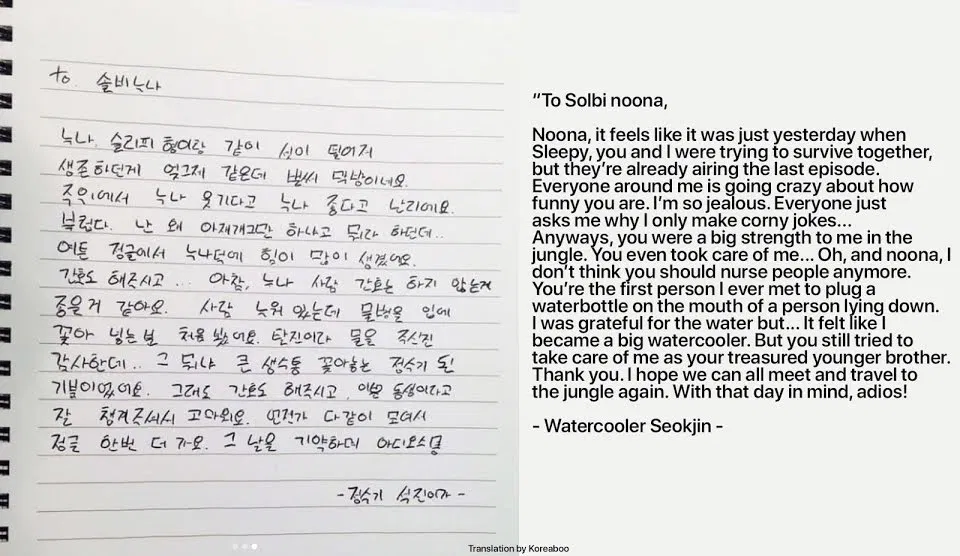 To. 솔비누나
누나. 슬리피 형이랑 같이 셋이 떨어져
생존하던게 엊그제 같은데 벌써 막방이네요.
주위에서 누나 웃기다고 누나 좋다고 난리에요.
부럽다. 난 왜 아재개그만 하냐고 뭐라 하던데..
여튼 정글에서 누나덕에 힘이 많이 생겼어요.
간호도 해주시고... 아참, 누나 사람 간호는 하지 않는게
좋을거 같아요. 사람 누워 있는데 물병을 입에
꽂아 넣는분 처음 봤어요. 탄진이라 물을 주신건
감사한데.. 그 뭐냐 큰 생수통 꽂아놓는 정수기 된
기분이었어요. 그래도 간호도 해주시고, 이쁜 동생이라고
잘 챙겨주셔서 고마워요. 언젠가 다같이 모여서
정글 한번 더 가요. 그 날을 기약하며 아디오스
-정수기 석진이가-
“To Solbi noona,
Noona, it feels like it was just yesterday when
Sleepy, you and I were trying to survive together,
but they’re already airing the last episode.
Everyone around me is going crazy about how
funny you are. I’m so jealous. Everyone just
asks me why I only make corny jokes...
Anyways, you were a big strength to me in the
jungle. You even took care of me... Oh, and noona, I
don’t think you should nurse people anymore.
You’re the first person I ever met to plug a
waterbottle on the mouth of a person lying down.
I was grateful for the water but... It felt like I
became a big watercooler. But you still tried to
take care of me as your treasured younger brother.
Thank you. I hope we can all meet and travel to
the jungle again. With that day in mind, adios!
- Watercooler Seokjin -
Translation by Koreaboo